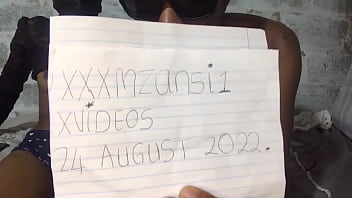 XXXMZansi1
XVIDEOS
24 AUGUST 2022.